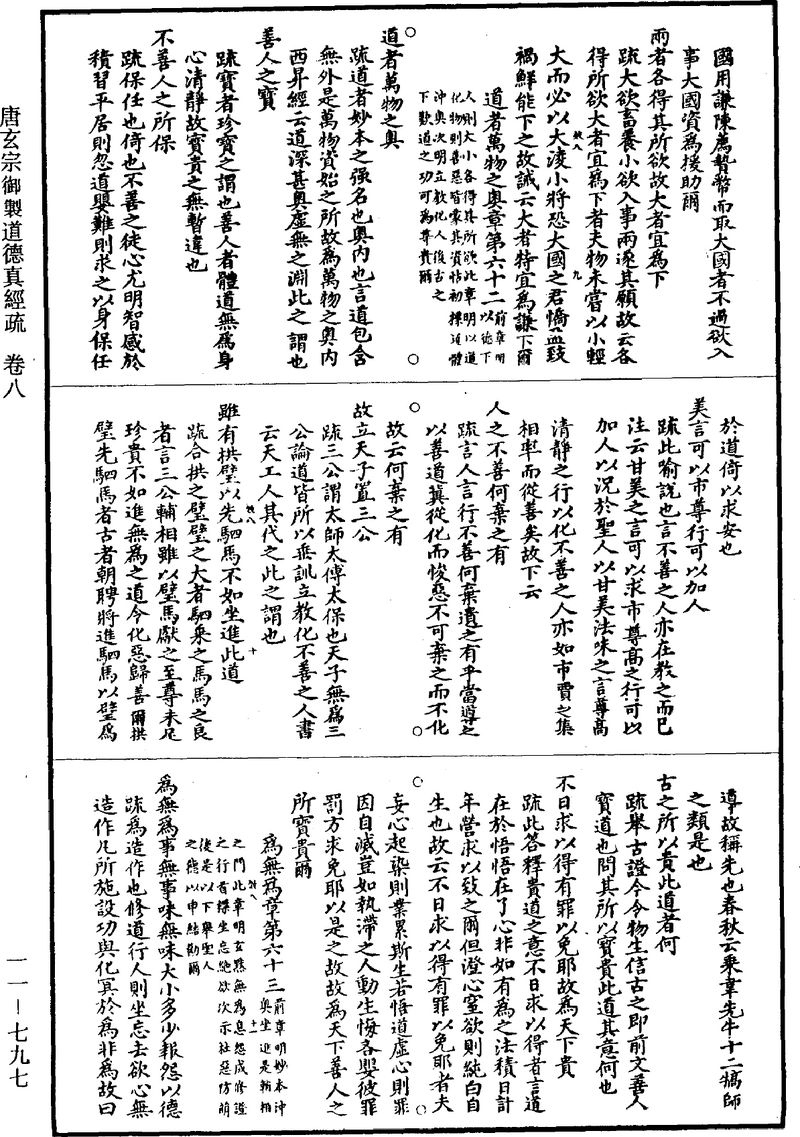 國用謙陳薦贄幣而取大國者不過欲入
事大國資為援助爾
兩者各得其所欲故大者宜為下
疏大欲畜養小欲入事兩遂其願故云各
得所欲大者宜為下者夫物未嘗以小輕
大而必以大淩小將恐大國之君憍盈致
禍鮮能下之故誡云大者特宜為謙下爾
道者萬物之奧章第六十二
前章明以德下
人則大小各得其所欲此章明以道
化物則善惡皆蒙其資恃初標道體
沖奧次明立教化人後古之
下歎道之功可為尊貴爾
道者萬物之奧
疏道者妙本之強名也奧內也言道包含
無外是萬物資始之所故為萬物之奧內
西昇經云道深甚奧虛無之淵此之謂也
善人之寶
疏寶者珍寶之謂也善人者體道無為身
心清靜故寶貴之無暫違也
不善人之所保
疏保任也倚也不善之徒心尤明智惑於
積習平居則忽道嬰難則求之以身保任
於道倚以求安也
美言可以市尊行可以加人
疏此喻說也言不善之人亦在教之而已
注云甘美之言可以求市尊高之行可以
加人以況於聖人以甘美法味之言尊高
清靜之行以化不善之人亦如市賈之集
相率而從善矣故下云
人之不善何棄之有
疏言人言行不善何棄遺之有乎當導之
以善道冀從化而悛惡不可棄之而不化
故云何棄之有
故立天子置三公
疏三公謂太師太傅太保也天子無為三
公論道皆所以垂訓立教化不善之人書
云天工人其代之此之謂也
雖有拱璧以先駟馬不如坐進此道
疏合拱之璧璧之大者駟乘之馬馬之良
者言三公輔相雖以璧馬獻之至尊未足
珍貴不如進無為之道令化惡歸善爾拱
璧先駟馬者古者朝聘將進駟馬以璧為
導故稱先也春秋云乘韋先牛十二犒師
之類是也
古之所以貴此道者何
疏舉古證今令物生信古之即前文善人
寶道也問其所以寶貴此道其意何也
不日求以得有罪以免耶故為天下貴
疏此答釋貴道之意不日求以得者言道
在於悟悟在了心非如有為之法積日計
年營求以致之爾但澄心窒欲則純白自
生也故云不日求以得有罪以免耶者夫
妄心起染則業累斯生若悟道虛心則罪
因自滅豈如執滯之人動生悔吝嬰彼罪
罰方求免耶以是之故故為天下善人之
所寶貴爾
為無為章第六十三
前章明妙本沖
奧坐進是輔相
之門此章明玄默無為息怨成修證
之行首標坐忘絕欲次示杜惡防萌
後是以下舉聖人
之德以申結勸爾
為無為事無事味無味大小多少報怨以德
疏為造作也修道行人則坐忘去欲心無
造作凡所施設功與化冥於為非為故曰
唐玄宗御製道德真經疏 卷八
一一－七九七